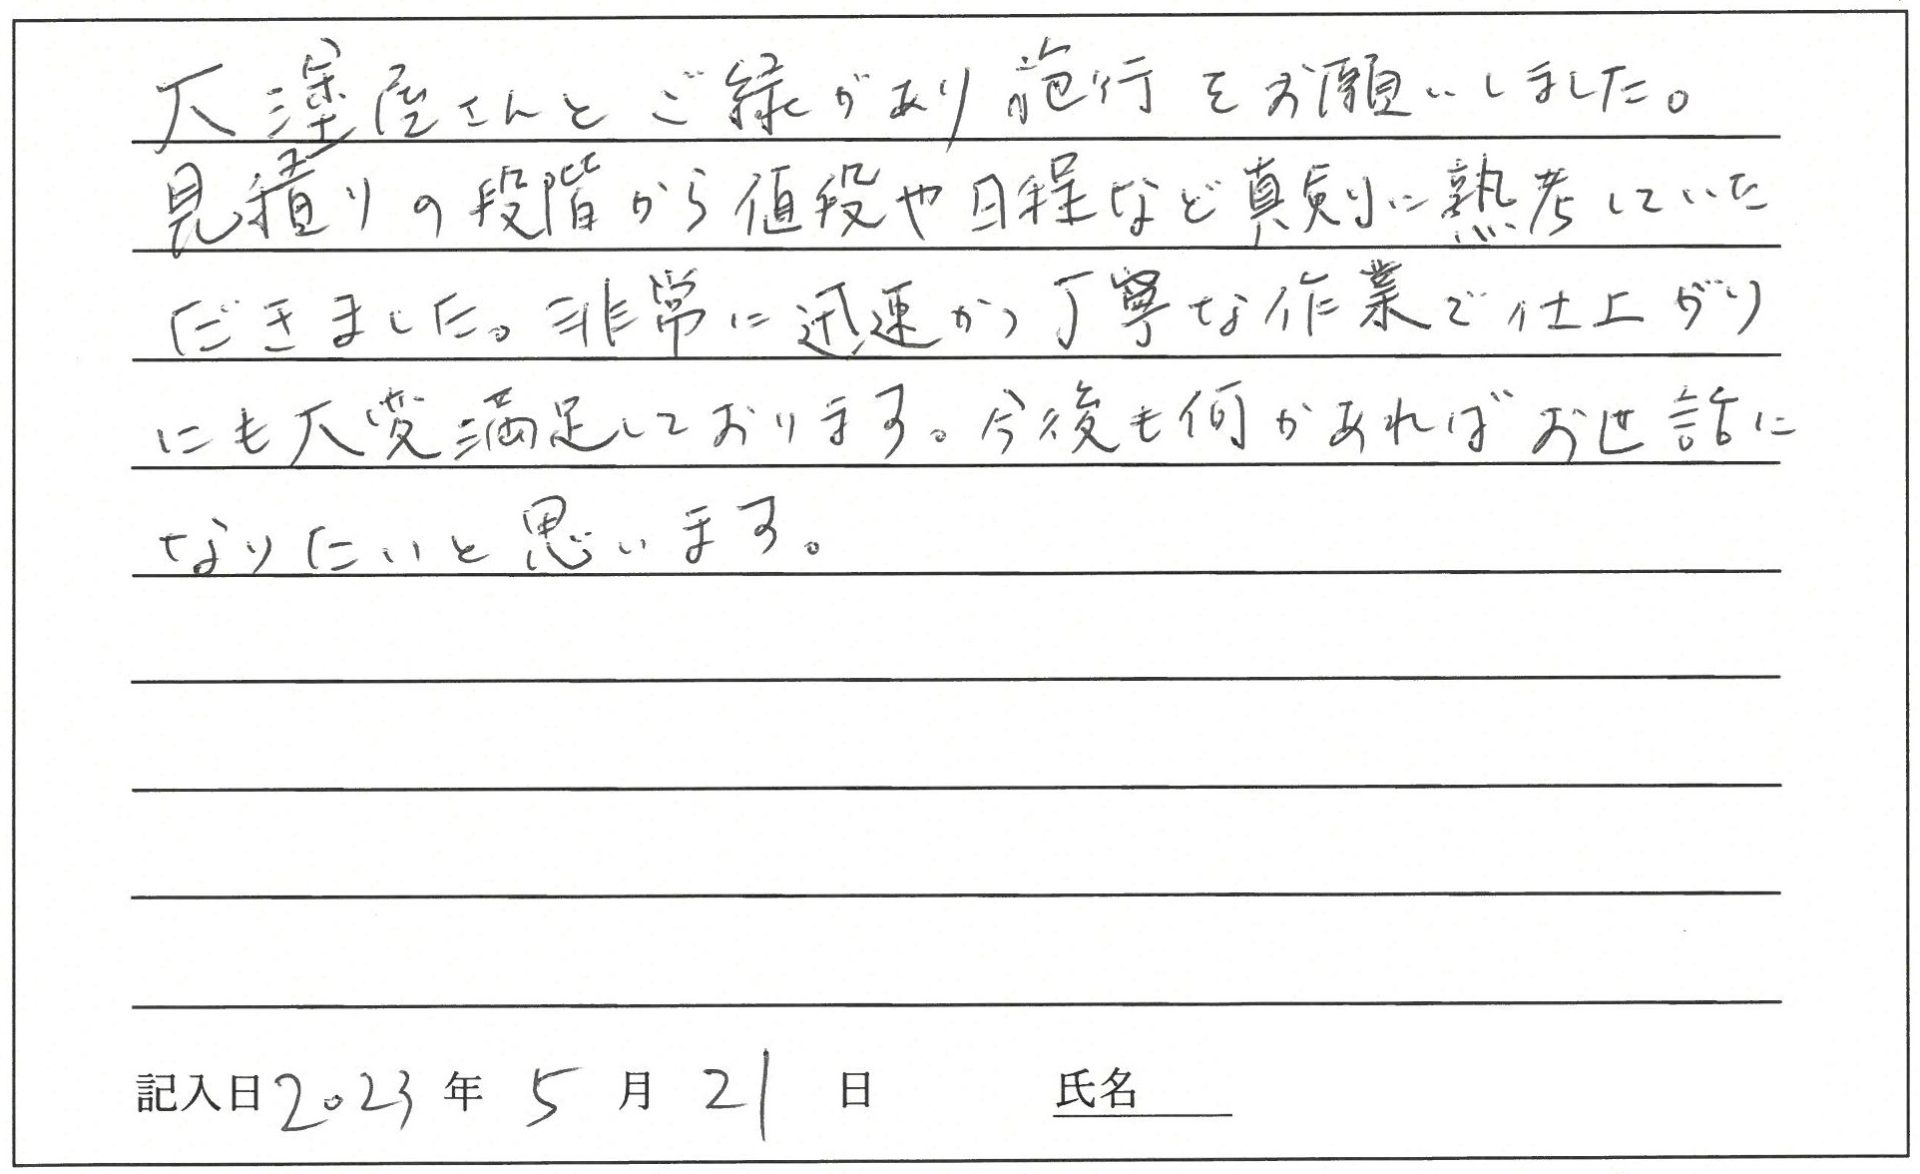 大塗屋さんとご縁があり施行をお願いしました。
見積りの段階から値段や日程など真剣に熟考していた
だきました。非常に迅速かつ丁寧な作業で仕上がり
にも大変満足しております。今後も何かあればお世話に
なりたいと思います。
記入日2023年 5月 21日 氏名